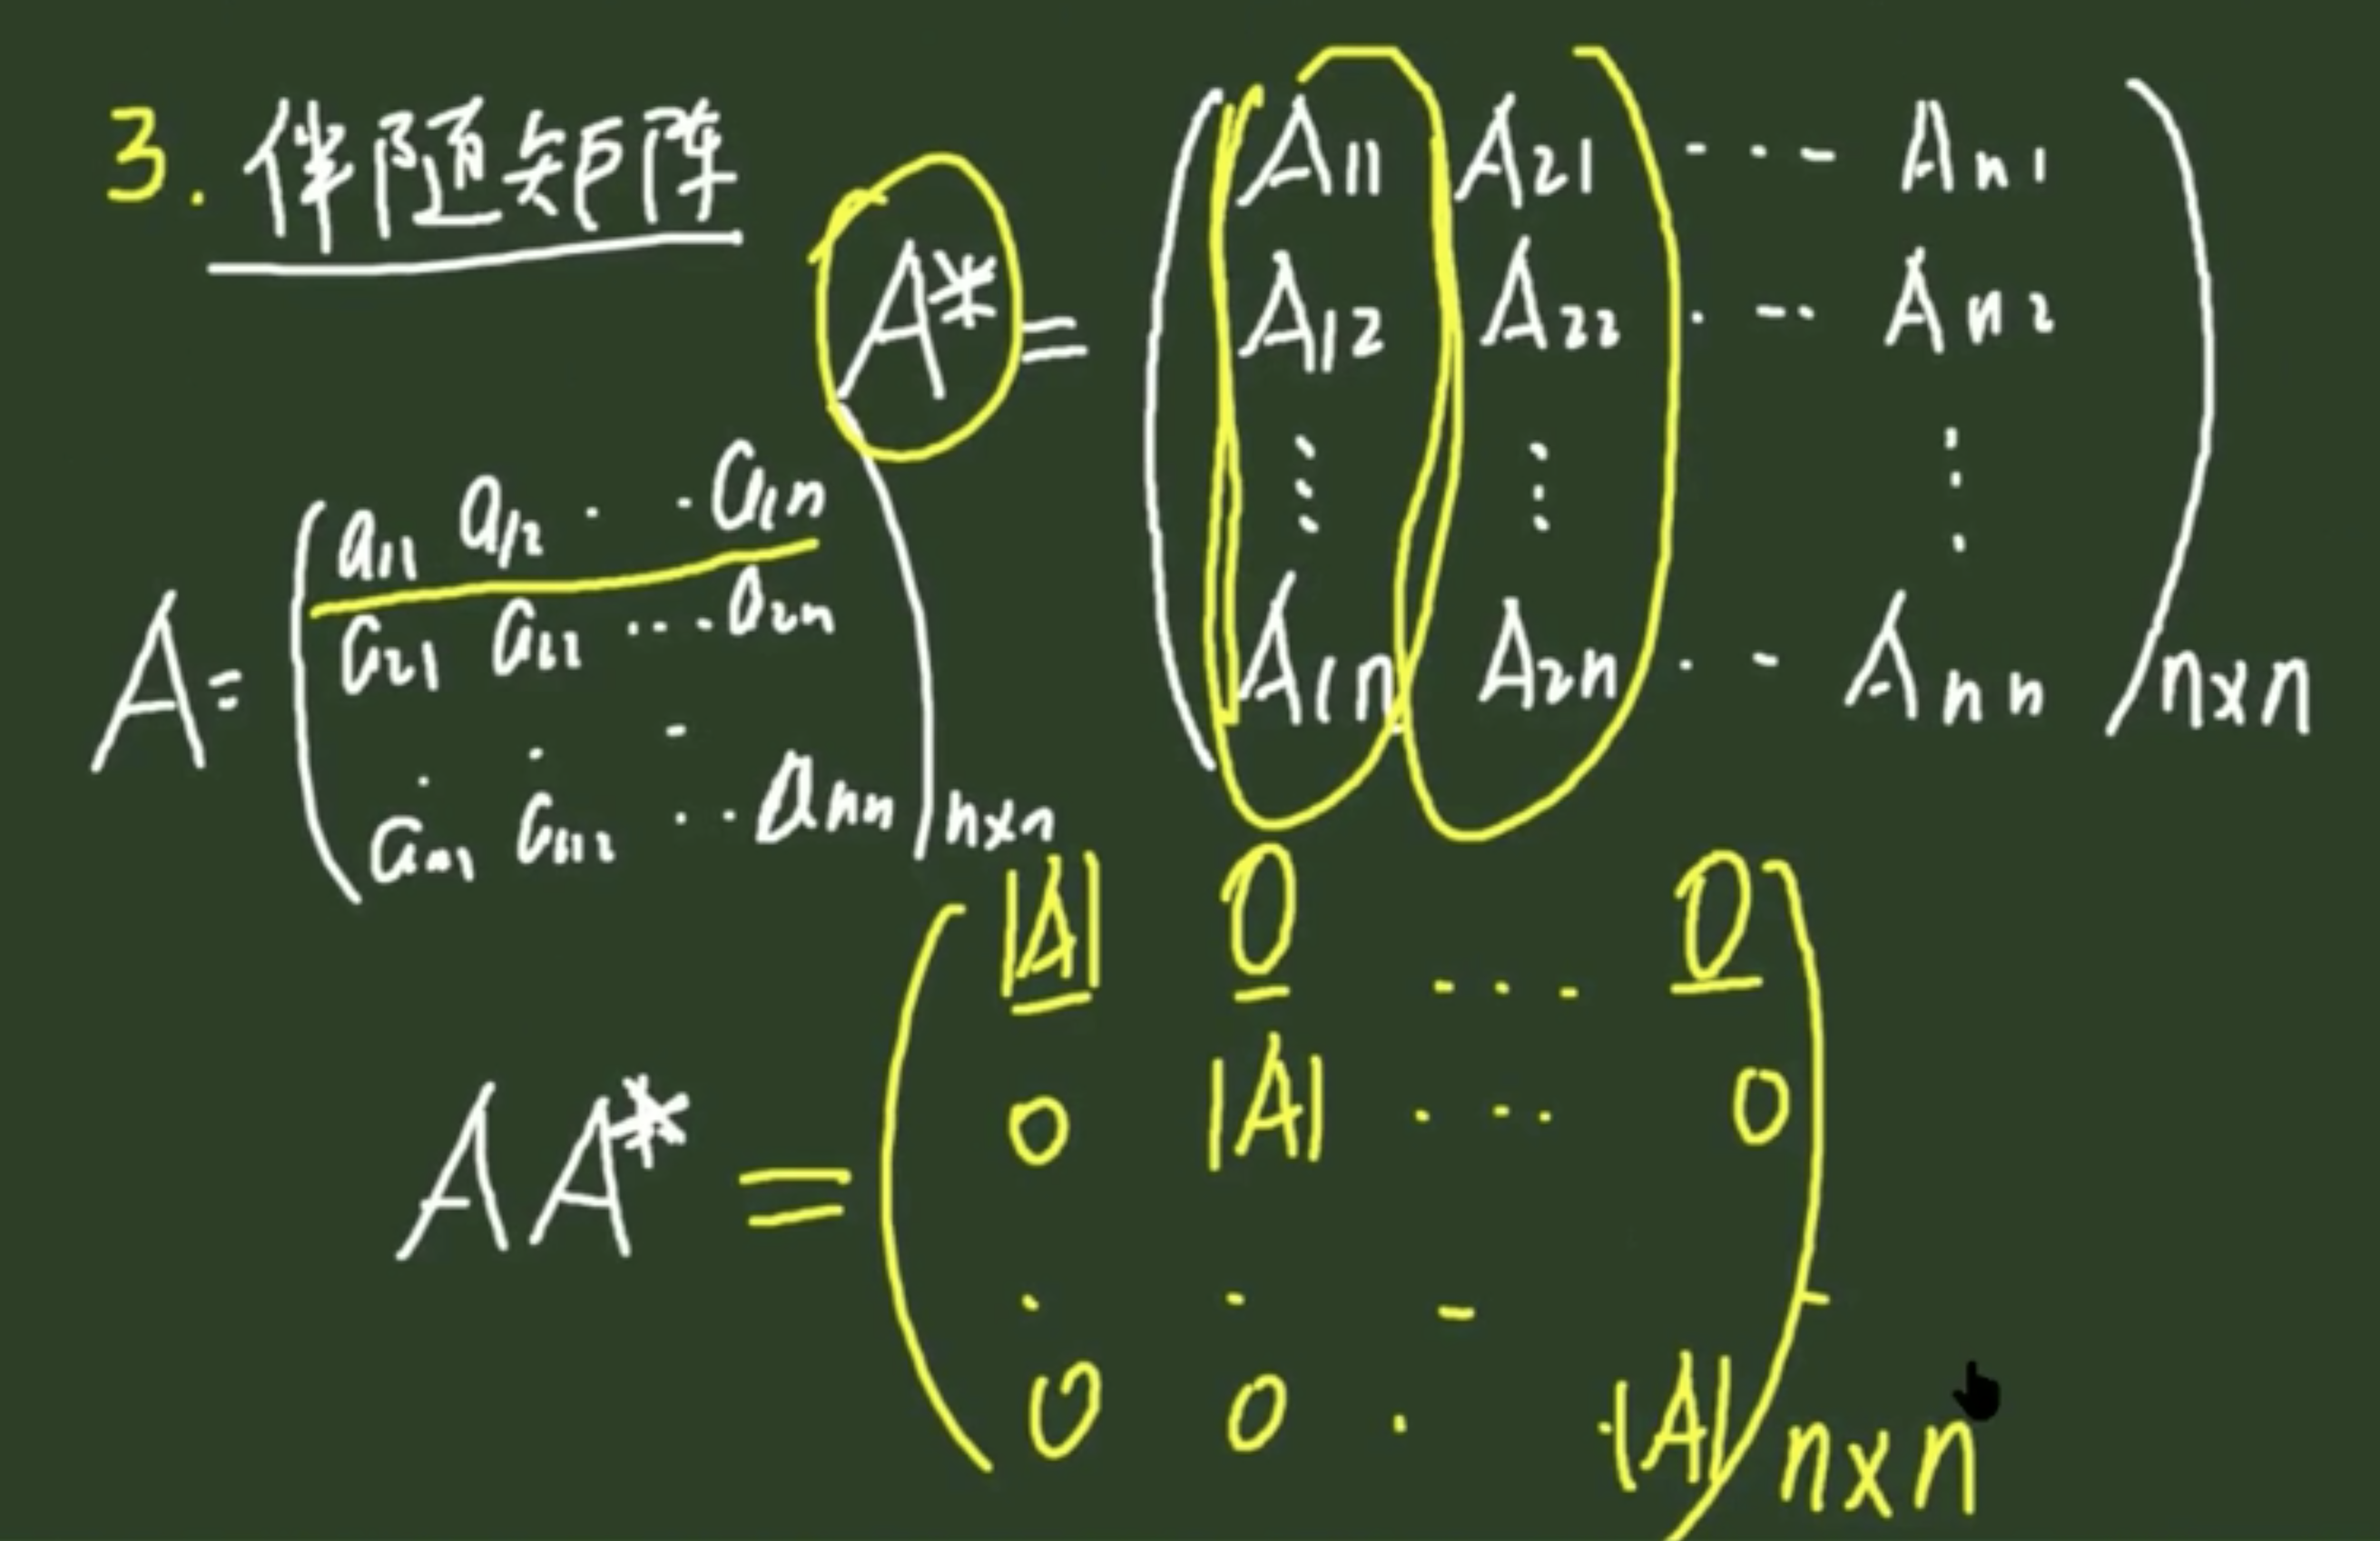 3. 伴随矩阵
A* = ( A11 A21 · · · An1
A12 A22 · · · An2
⋮ ⋮ ⋮
A1n A2n · · Ann ) n×n
A = ( a11 a12 · · a1n
a21 a22 · · · a2n
· · ·
an1 an2 · · ann ) n×n
AA* = ( |A| 0 · · · 0
0 |A| · · · 0
· · · ·
0 0 · · |A| ) n×n